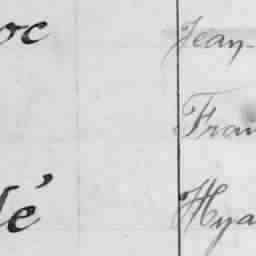 oc Jean-
Fran
lé Hya